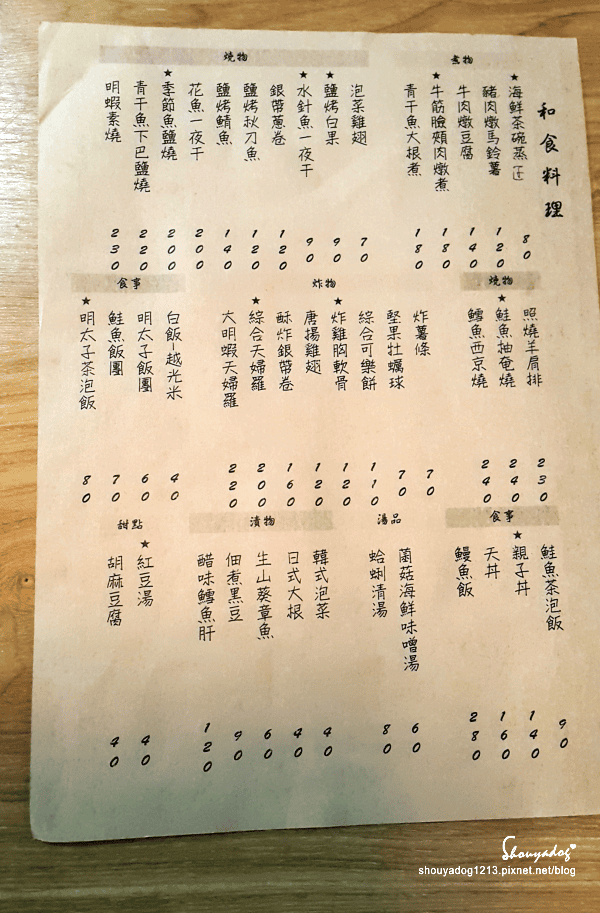 和食料理
煮物
★海鮮茶碗蒸 80
豬肉燉馬鈴薯 120
牛肉燉豆腐 140
★牛筋臉頰肉燉煮 180
青干魚大根煮 180
燒物
泡菜雞翅 70
★鹽烤白果 90
★水針魚一夜干 90
銀帶蔥卷 120
鹽烤秋刀魚 120
鹽烤鯖魚 140
花魚一夜干 200
★季節魚鹽燒 200
青干魚下巴鹽燒 220
明蝦素燒 230
燒物
照燒羊肩排 230
★鮭魚抽奄燒 240
鱈魚西京燒 240
炸物
炸薯條 70
堅果牡蠣球 70
綜合可樂餅 110
★炸雞胸軟骨 120
唐揚雞翅 120
酥炸銀帶卷 160
★綜合天婦羅 200
大明蝦天婦羅 220
食事
白飯-越光米 40
明太子飯團 60
鮭魚飯團 70
★明太子茶泡飯 80
食事
鮭魚茶泡飯 90
★親子丼 140
天丼 160
鰻魚飯 280
湯品
菌菇海鮮味噌湯 60
蛤蜊清湯 80
漬物
韓式泡菜 40
日式大根 40
生山葵章魚 60
佃煮黑豆 90
醋味鱈魚肝 120
甜點
★紅豆湯 40
胡麻豆腐 40
Shouyadog
shouyadog1213.pixnet.net/blog